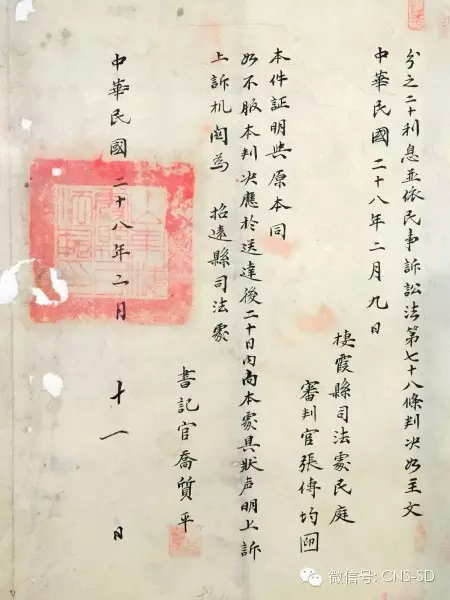 分之二十利息並依民事訴訟法第七十八條判决如主文
中華民國二十八年二月九日
棲霞縣司法處民庭
審判官張傳均
本件証明與原本同
如不服本判决應於送達後二十日内向本處具狀声明上訴
上訴机関為 招遠縣司法處
書記官喬質平
中華民國二十八年二月十一日
微信号: CNS-SD